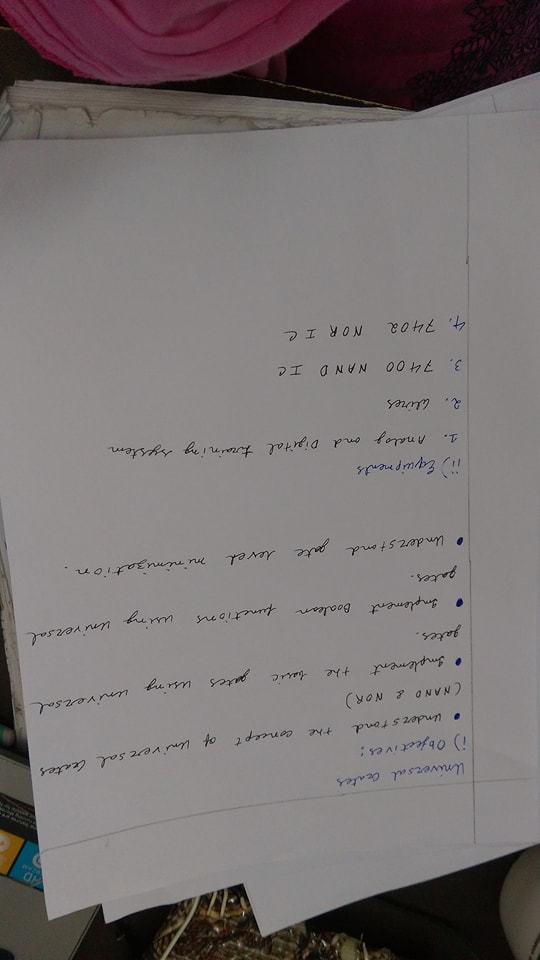 Universal Gates
i) Objectives:
• Understand the concept of Universal Gates
(NAND & NOR)
• Implement the basic gates using universal
gates.
• Implement Boolean functions using universal
gates.
• Understand gate level minimization.
ii) Equipments
1. Analog and Digital training system
2. Wires
3. 7400 NAND IC
4. 7402 NOR IC